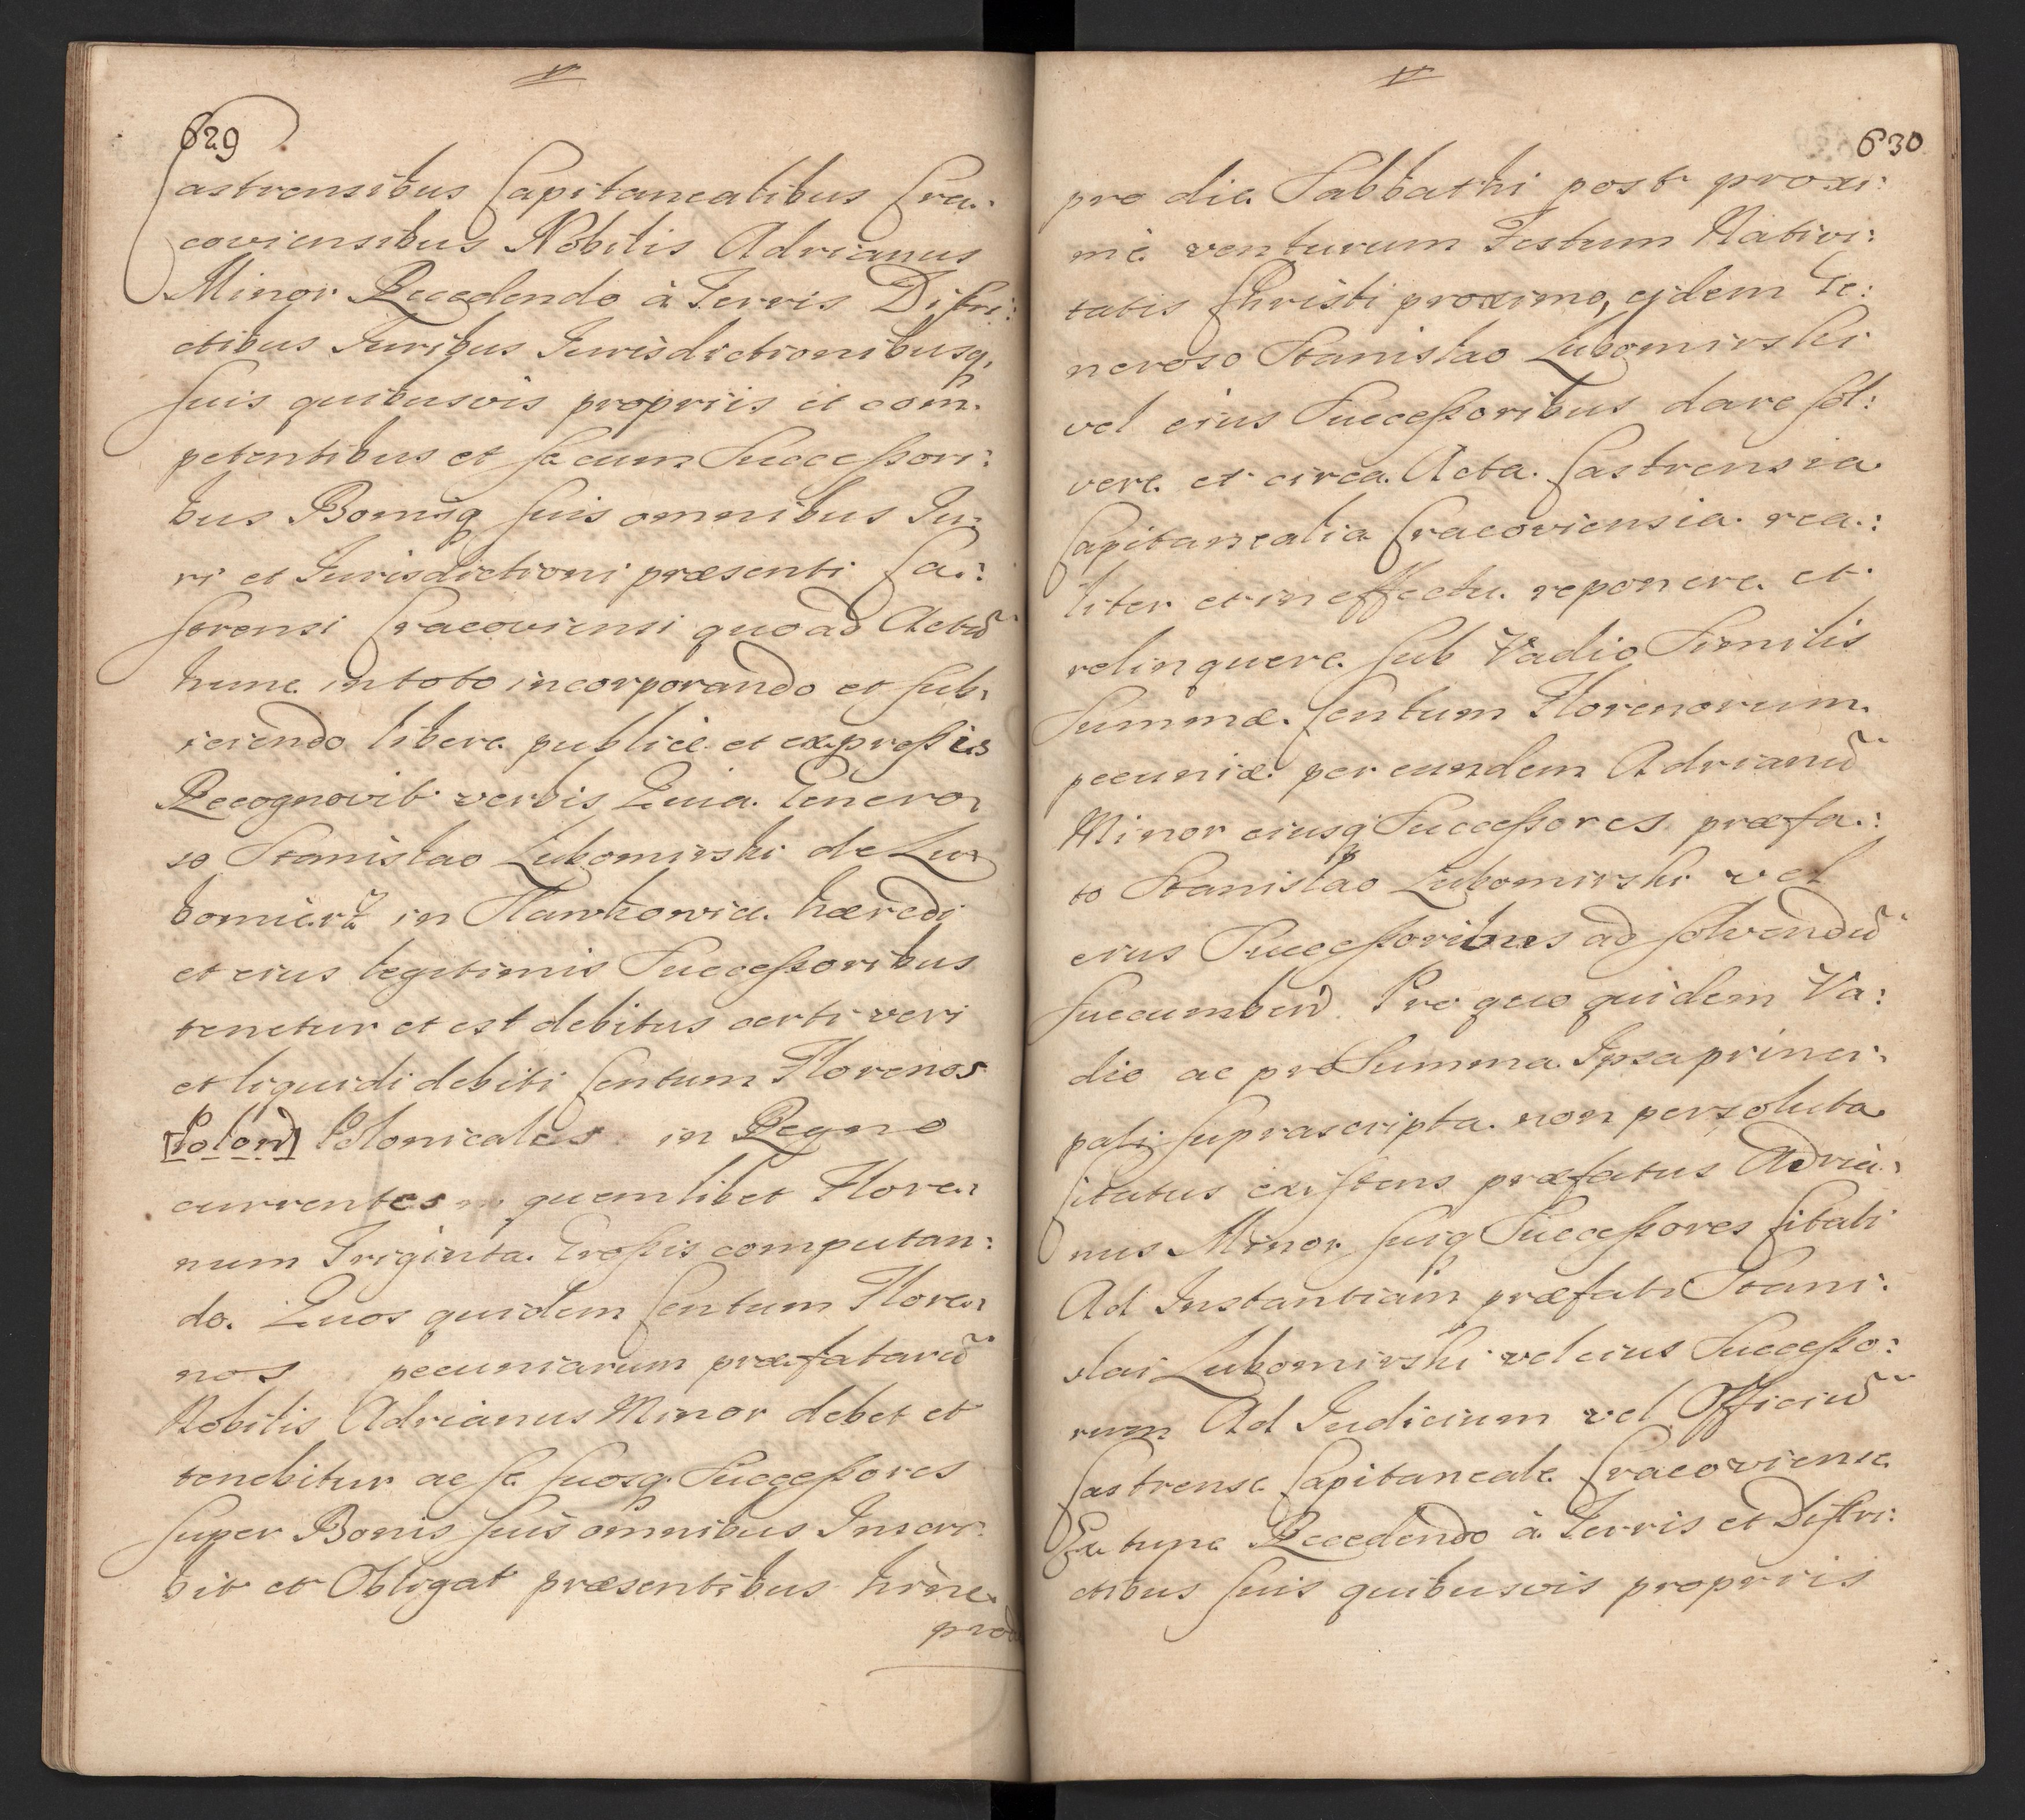 629
Castrensibus Capitanealibus Cra:
coviensibus Nobilis Adrianus
Minor Recedendo à Terris Distri:
ctibus Iuribus Iurisdictionibusq,
suis quibusvis propriis et com̃:
petentibus et se cum Successori:
bus Bonisq suis omnibus Iu:
ri et Iurisdictioni præsenti Ca:
strensi Cracoviensi quoad Actũ
hunc in toto incorporando et sub:
iciendo libere publicè et expressis
Recognovit verbis Quia Genero:
so Stanislao Lubomirski de Lu:
bomierz in Sławkowice hæredi
et eius legitimis Successoribus
tenetur et est debitus certi veri
et liquidi debiti Centum Florenos
[Polon] Polonicales in Regno
currentes quemlibet Flore:
num Triginta Grossis computan:
do. Quos quidem Centum Flore:
nos pecuniarum præfatarũ
Nobilis Adrianus Minor debet et
tenebitur ac se suosq Successores
super Bonis suis omnibus Inscri:
bit et Obligat præsentibus hinc
pro
630
pro die Sabbathi post proxi:
mè venturum Festum Nativi:
tatis Christi proximo, ejdem Ge:
neroso Stanislao Lubomirski
vel eius Successoribus dare sol:
vere et circa Acta Castrensia
Capitanealia Cracoviensia rea:
liter et in effectu reponere et
relinquere sub Vadio Similis
Summæ Centum Florenorum
pecuniæ per eundem Adrianũ
Minor eiusq Successores præfa:
to Stanislao Lubomirski vel
eius Successoribus ad solvendũ
succumbend Pro quo quidem Va:
dio ac pro Summa Ipsa princi:
pali suprascripta non persoluta
Citatus existens præfatus Adria:
nus Minor suiq Successores Citati
Ad Instantiam præfati Stani:
slai Lubomirski vel eius Successo:
rum Ad Iudicium vel Officiũ
Castrense Capitaneale Cracoviense
Ex tunc Recedendo à Terris et Distri:
ctibus suis quibusvis propriis